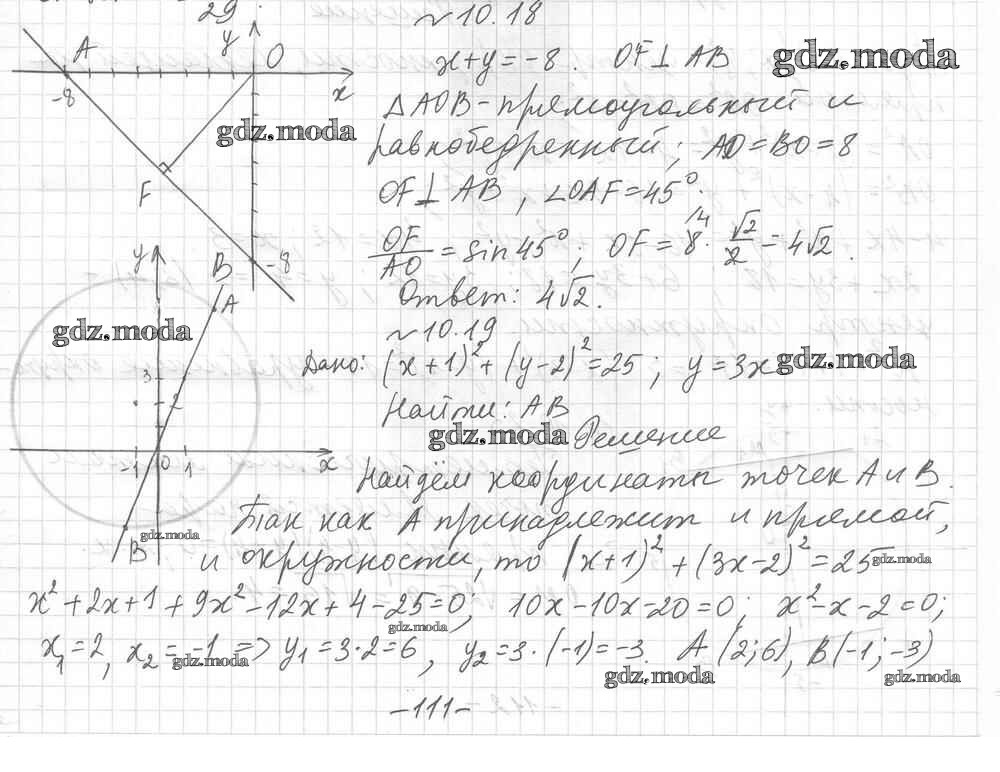 29.
№10.18
y
A
O
-8
x
x+y=-8. OF⊥AB
gdz.moda
gdz.moda
ΔAOB-прямоугольный и
равнобедренный; AO=BO=8
F
OF⊥AB, ∠OAF=45°.
OF/AO = sin 45°; OF = 8⁴ · √2/2 = 4√2.
-8
Ответ: 4√2.
y
B
A
gdz.moda
№10.19
Дано: (x+1)²+(y-2)²=25; y=3x
gdz.moda
3
2
Найти: AB
gdz.moda
Решение
-1 0 1 x
Найдём координаты точек A и B.
Так как A принадлежит и прямой,
gdz.moda
B
и окружности, то (x+1)²+(3x-2)²=25
gdz.moda
x²+2x+1+9x²-12x+4-25=0; 10x-10x-20=0; x²-x-2=0;
gdz.moda
x₁=2, x₂=-1 => y₁=3·2=6, y₂=3·(-1)=-3. A(2;6), B(-1;-3)
gdz.moda
gdz.moda
gdz.moda
-111-